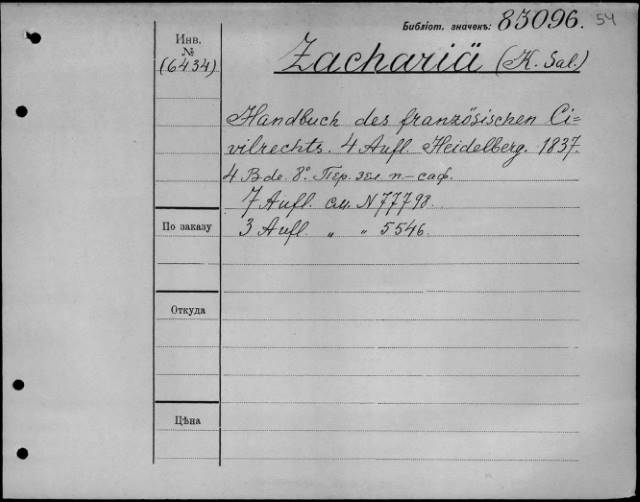 Библіот. значекъ: 83096. 54
Инв.
№
(6434)
Zachariä (K. Sal.)
Handbuch des französischen Ci=
vilrechts. 4 Aufl. Heidelberg. 1837.
4 Bde. 8º. Пер. зел. п-саф.
7 Aufl. см. N 77798.
3 Aufl. „ „ 5546.
По заказу
Откуда
Цѣна